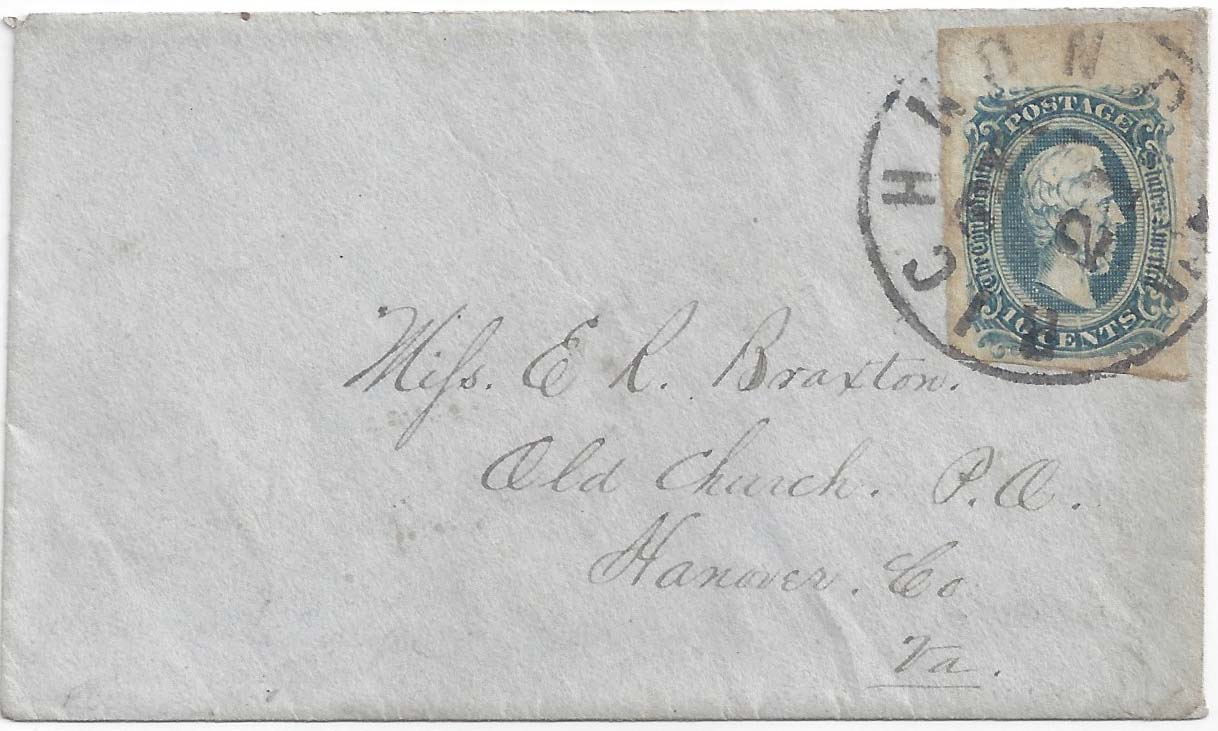 RICHMOND VA.
2
POSTAGE
The Confederate States of America
10 CENTS
Miſs. E R. Braxton.
Old Church. P. O.
Hanover. Co
Va.